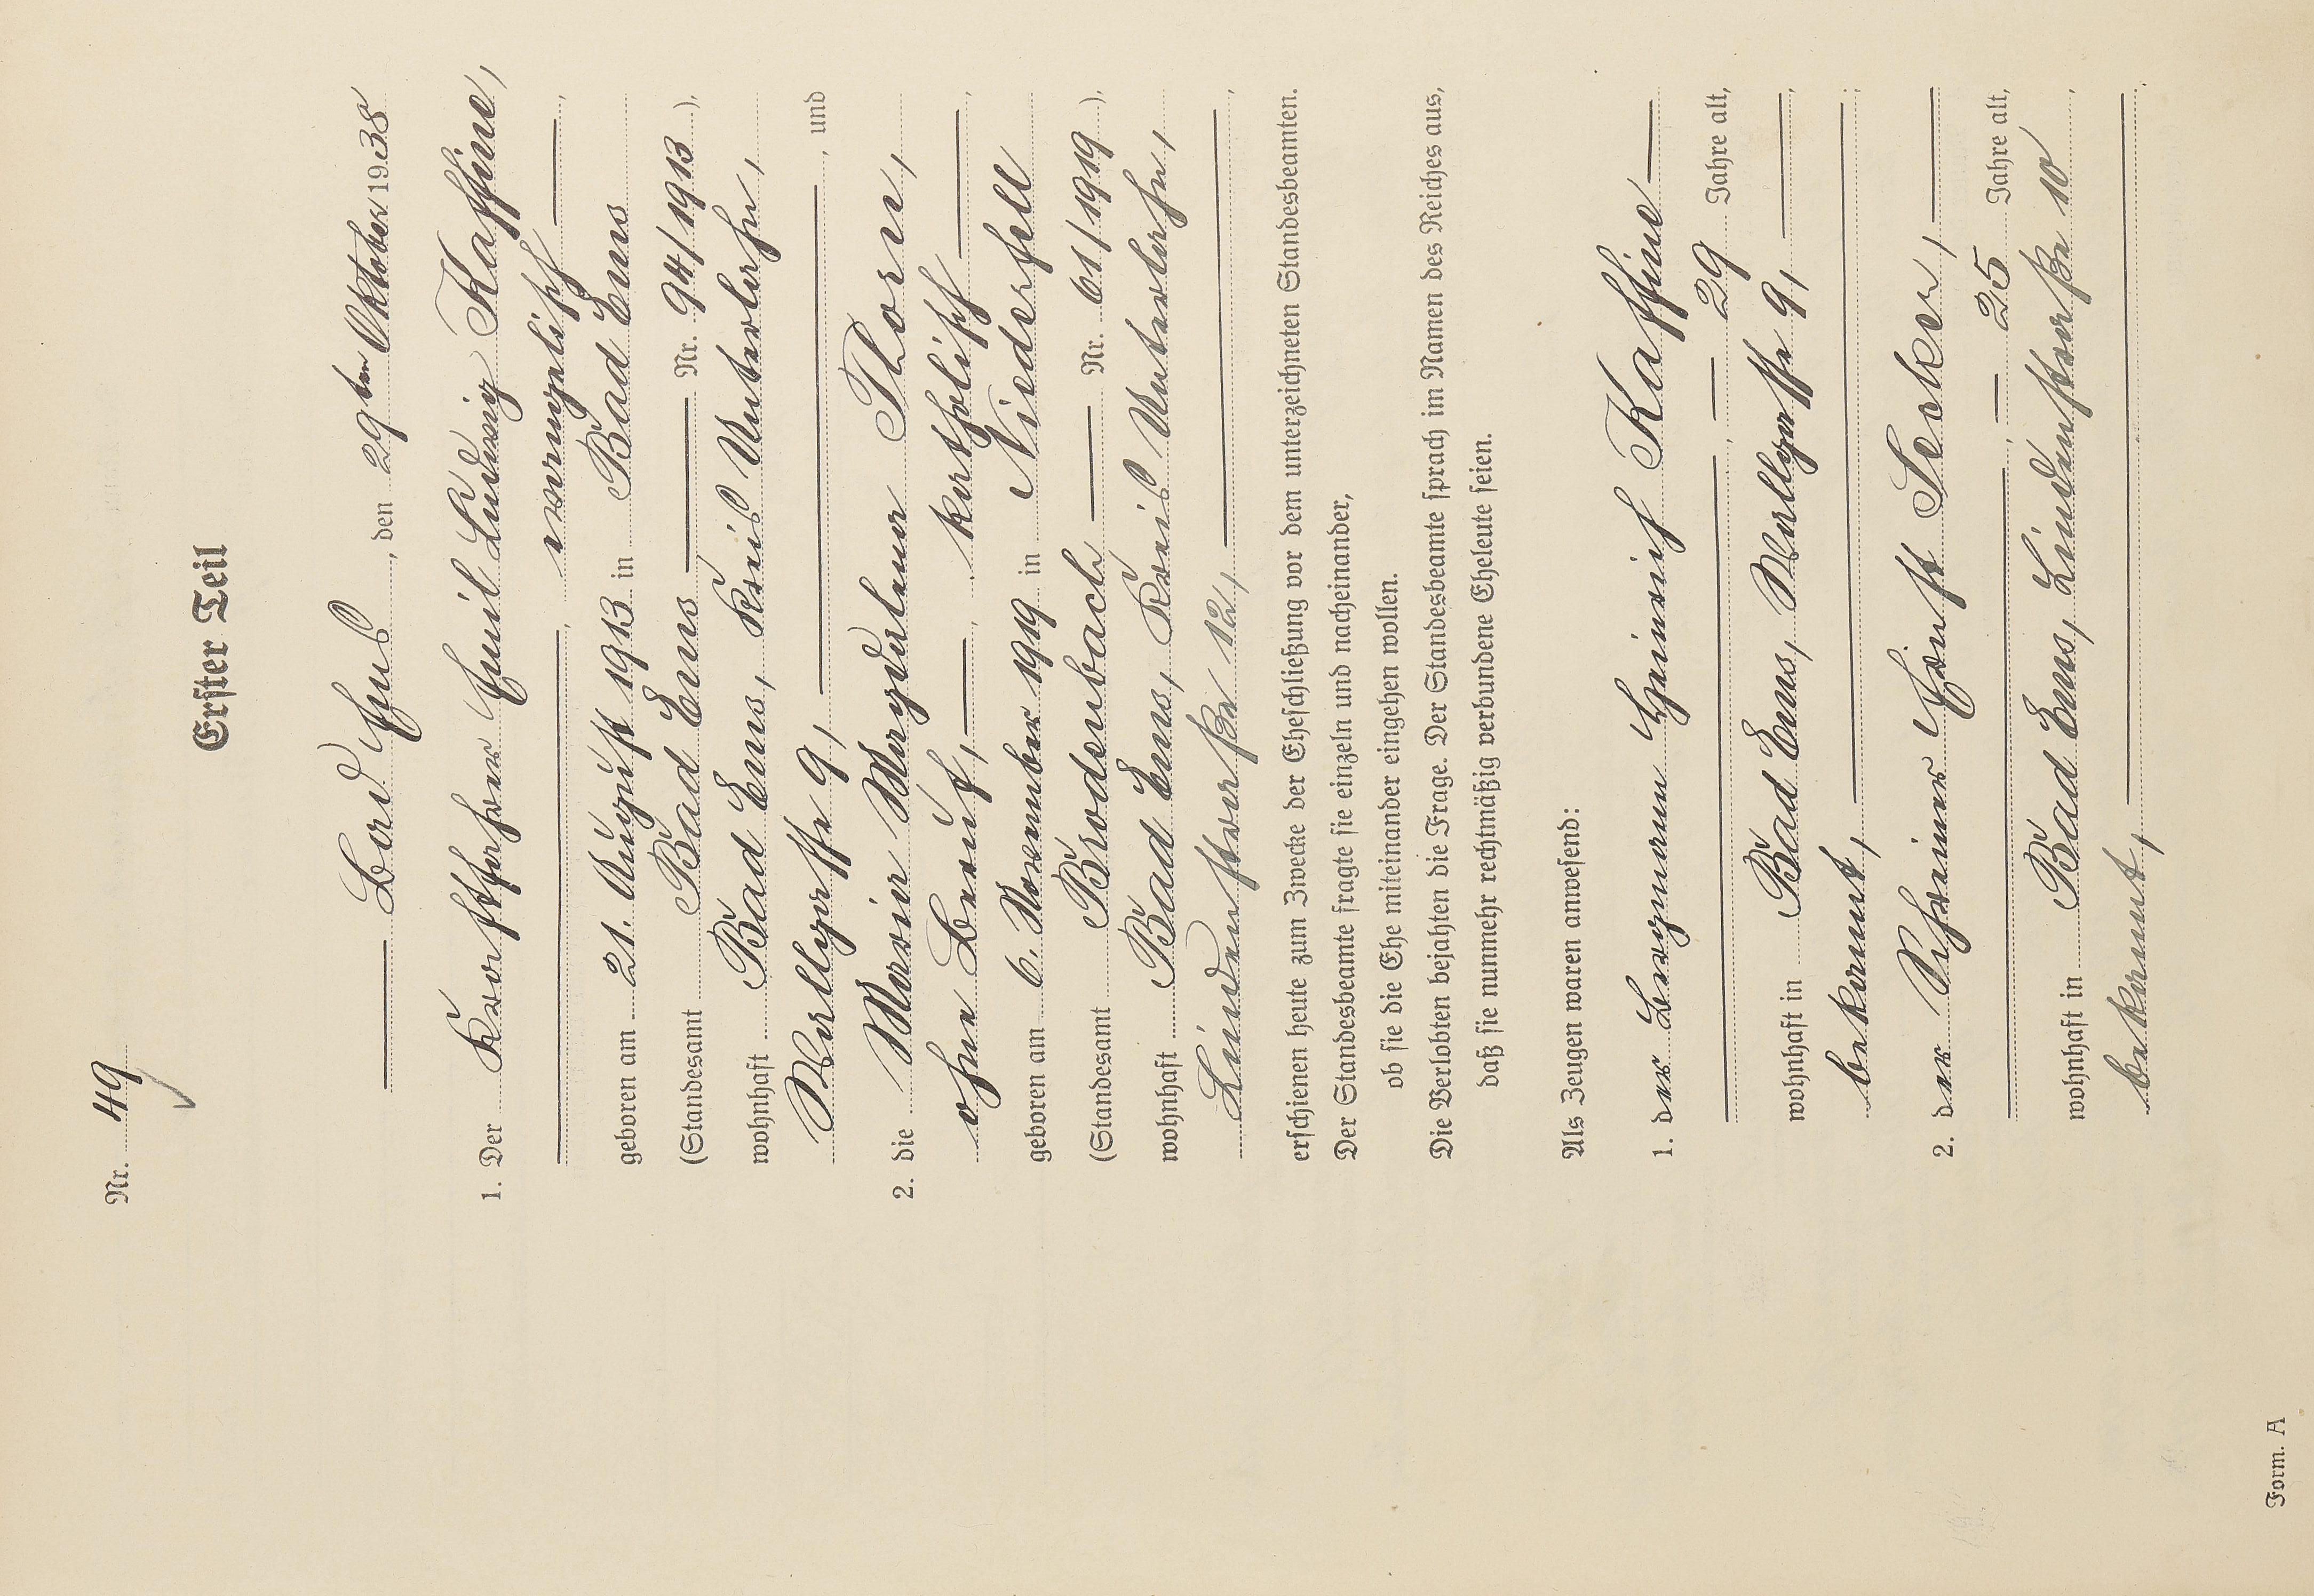 Nr. 49
Erster Teil
Bad Ems, den 29ten Oktober 1938
1. Der Kraftfahrer Emil Ludwig Kaffine,
evangelisch,
geboren am 21. August 1913 in Bad Ems
(Standesamt Bad Ems Nr. 94/1913),
wohnhaft Bad Ems, Kreis Unterlahn,
Wallgasse 9, und
2. die Maria Magdalena Thorn,
ohne Beruf, katholisch,
geboren am 6. November 1919 in Niederfell
(Standesamt Brodenbach Nr. 61/1919),
wohnhaft Bad Ems, Kreis Unterlahn,
Lindenstraße 12,
erschienen heute zum Zwecke der Eheschließung vor dem unterzeichneten Standesbeamten.
Der Standesbeamte fragte sie einzeln und nacheinander,
ob sie die Ehe miteinander eingehen wollen.
Die Verlobten bejahten die Frage. Der Standesbeamte sprach im Namen des Reiches aus,
daß sie nunmehr rechtmäßig verbundene Eheleute seien.
Als Zeugen waren anwesend:
1. der Bergmann Heinrich Kaffine
, 29 Jahre alt,
wohnhaft in Bad Ems, Wallgasse 9,
bekannt,
2. der Schreiner Ernst Secker,
, 25 Jahre alt,
wohnhaft in Bad Ems, Lindenstraße 10
bekannt,
Form. A